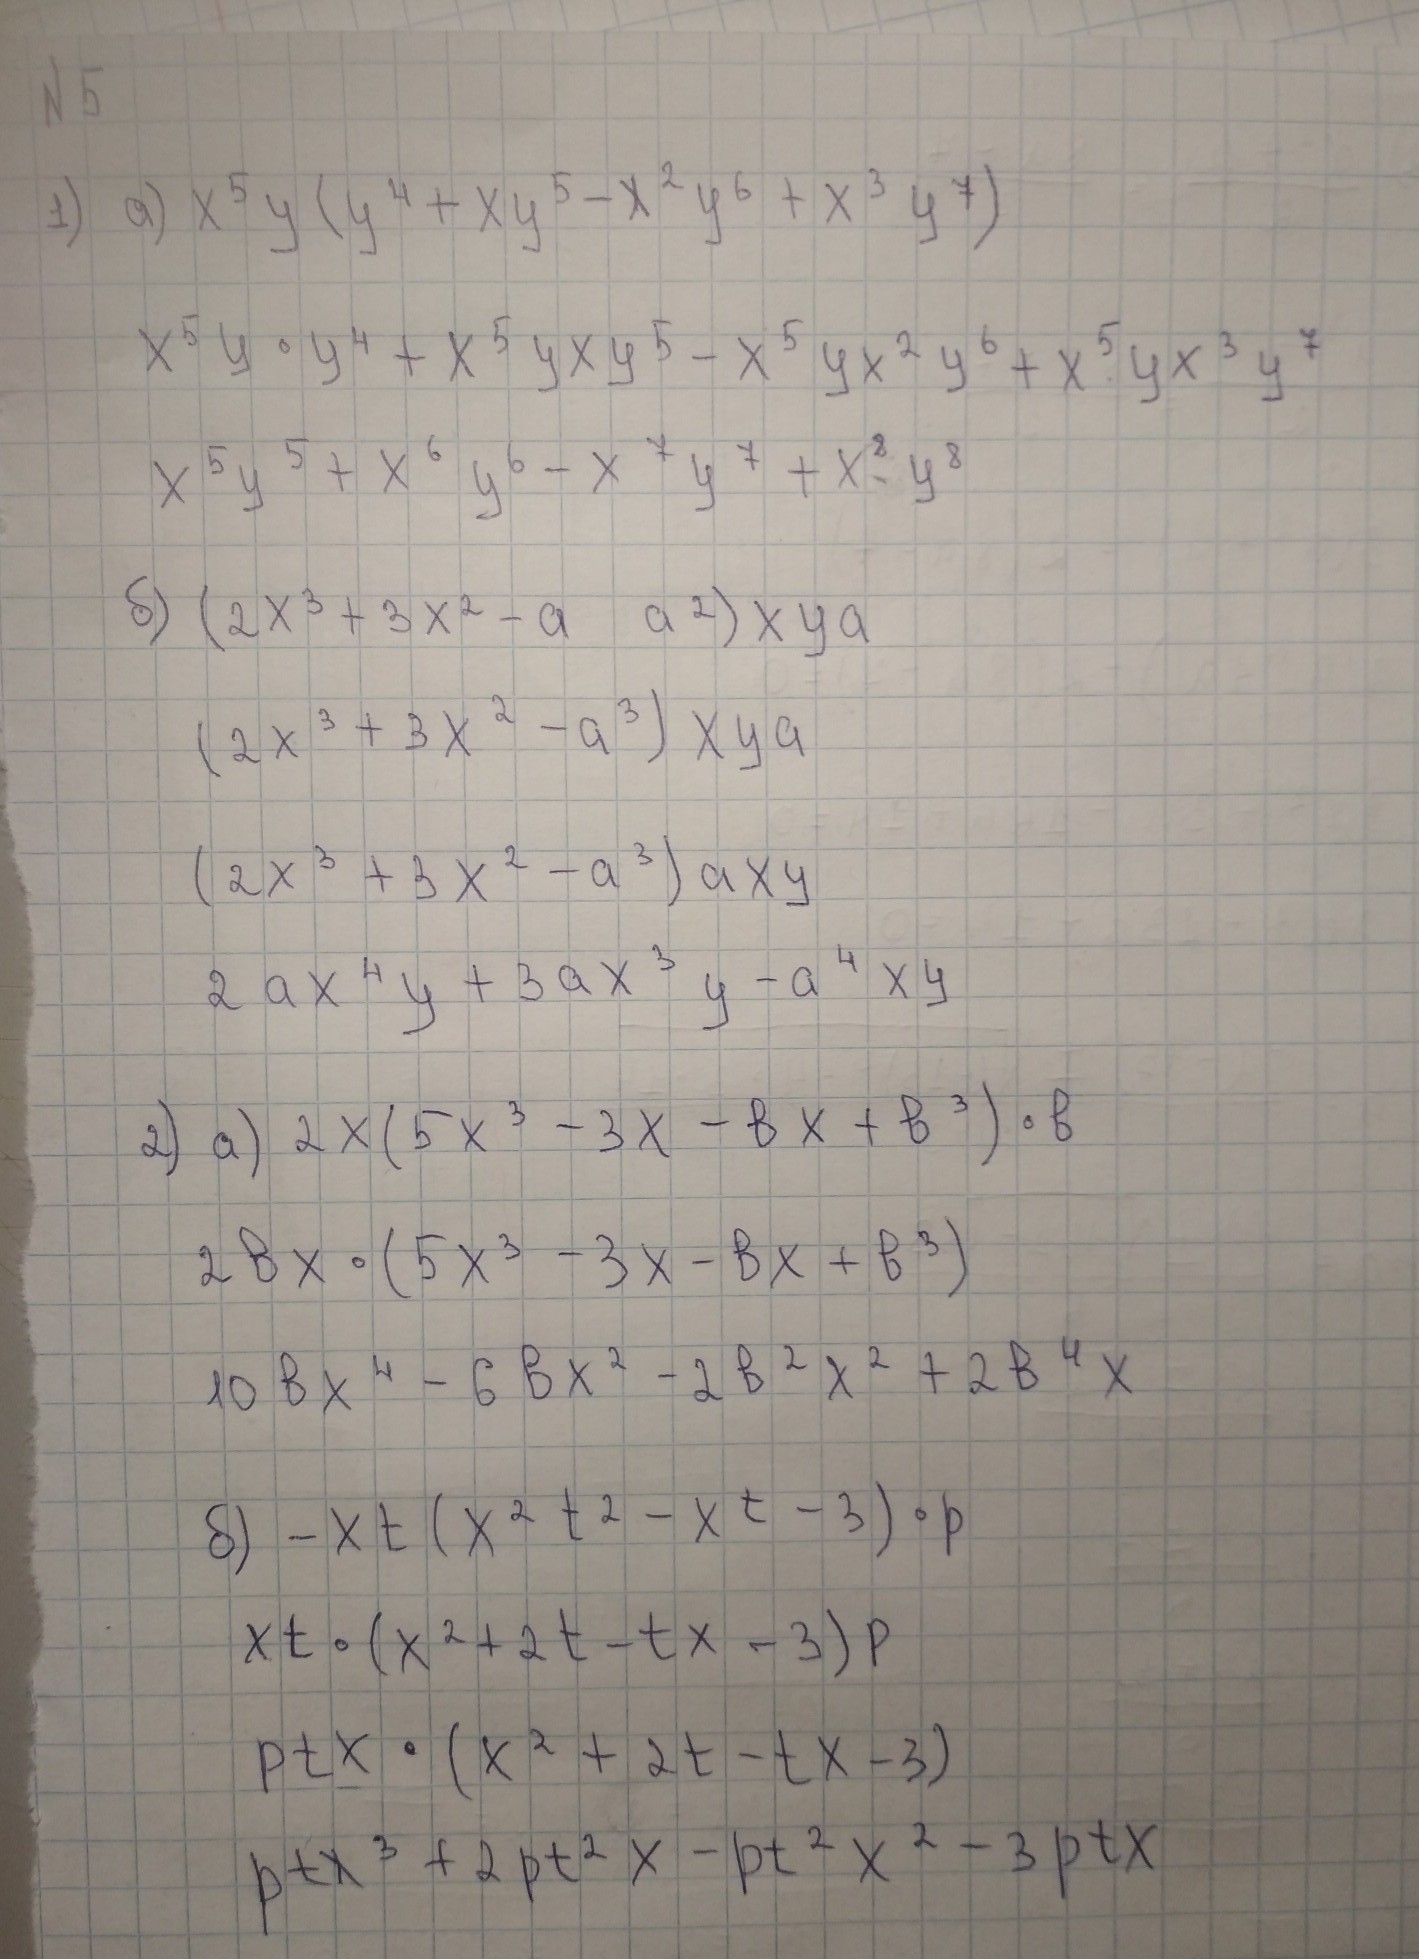 №5
1) а) x⁵y(y⁴+xy⁵-x²y⁶+x³y⁷)
x⁵y·y⁴+x⁵yxy⁵-x⁵yx²y⁶+x⁵yx³y⁷
x⁵y⁵+x⁶y⁶-x⁷y⁷+x⁸y⁸
б) (2x³+3x²-a a²)xya
(2x³+3x²-a³)xya
(2x³+3x²-a³)axy
2ax⁴y+3ax³y-a⁴xy
2) а) 2x(5x³-3x-вx+в³)·в
2вx·(5x³-3x-вx+в³)
10вx⁴-6вx²-2в²x²+2в⁴x
б) -xt(x²t²-xt-3)·p
xt·(x²+2t-tx-3)p
ptx·(x²+2t-tx-3)
ptx³+2pt²x-pt²x²-3ptx